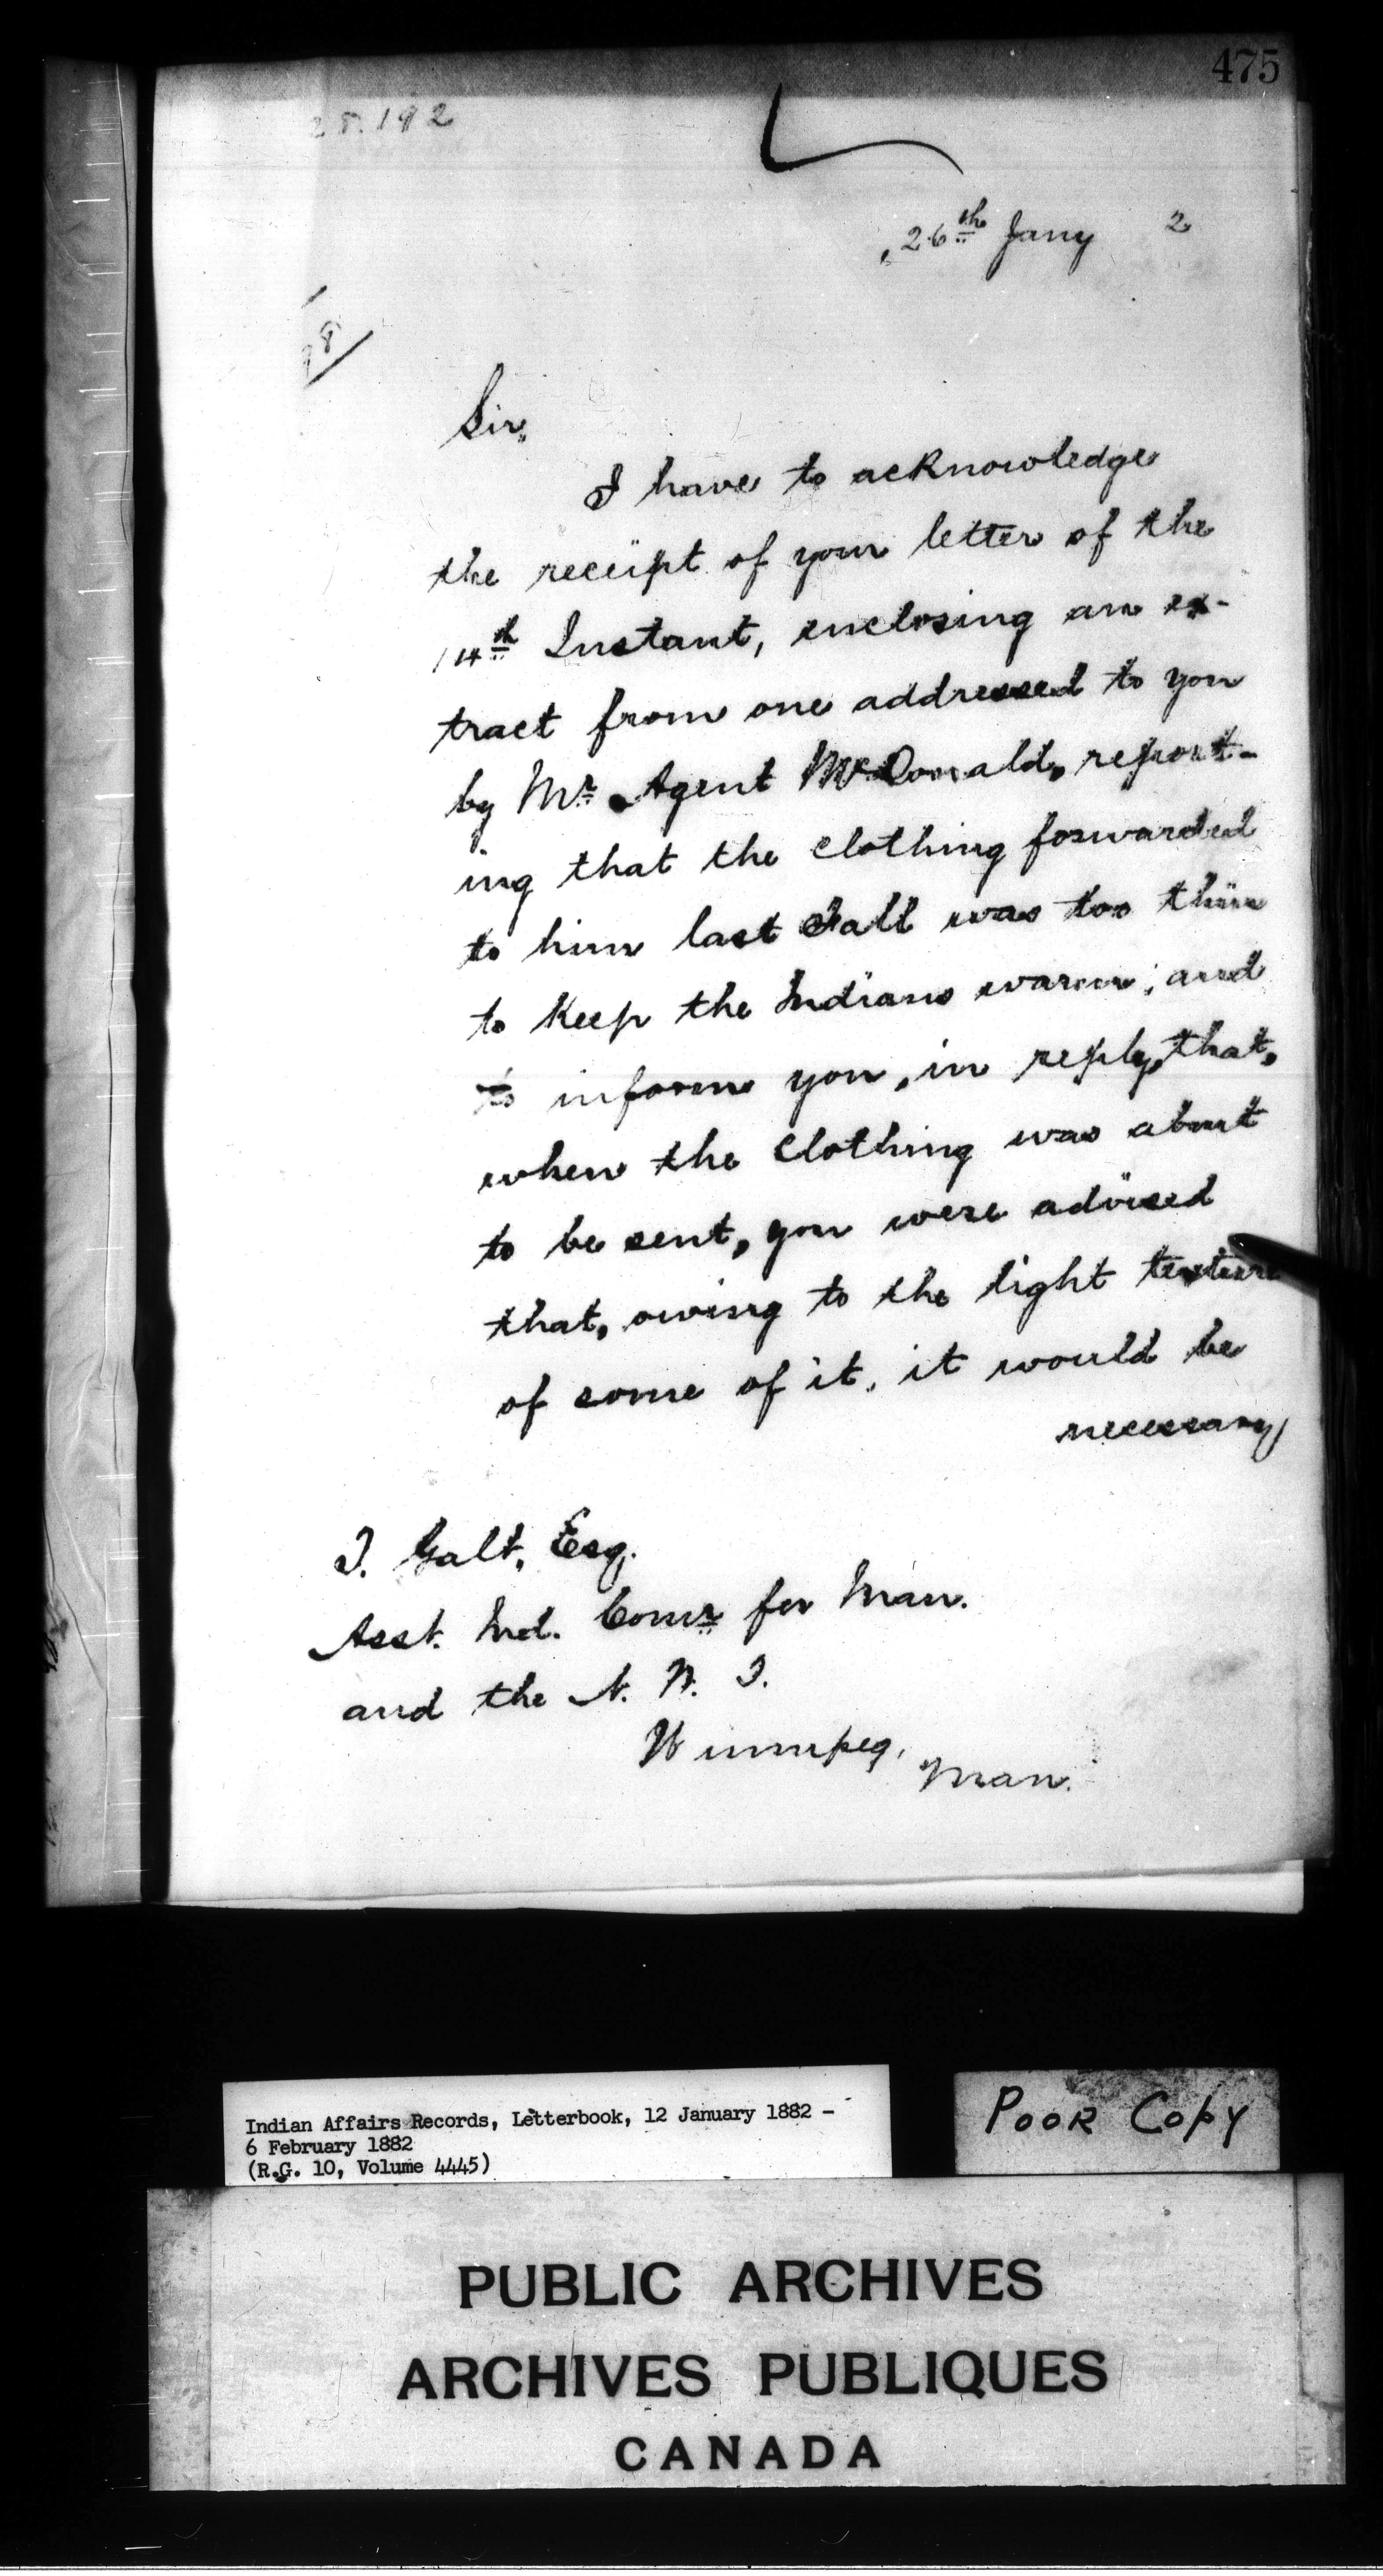 475
28.192
26th Jany 2
Sir,
I have to acknowledge
the receipt of your letter of the
14th Instant, enclosing an ex-
tract from one addressed to you
by Mr. Agent McDonald, report-
ing that the clothing forwarded
to him last Fall was too thin
to keep the Indians warm; and
to inform you, in reply, that,
when the clothing was about
to be sent, you were advised
that, owing to the light texture
of some of it, it would be
necessary
T. Galt, Esq.
Asst. Ind. Comr for Man.
and the N. W. T.
Winnipeg,
Man.
Indian Affairs Records, Letterbook, 12 January 1882 -
6 February 1882
(R.G. 10, Volume 4445)
POOR COPY
PUBLIC ARCHIVES
ARCHIVES PUBLIQUES
CANADA